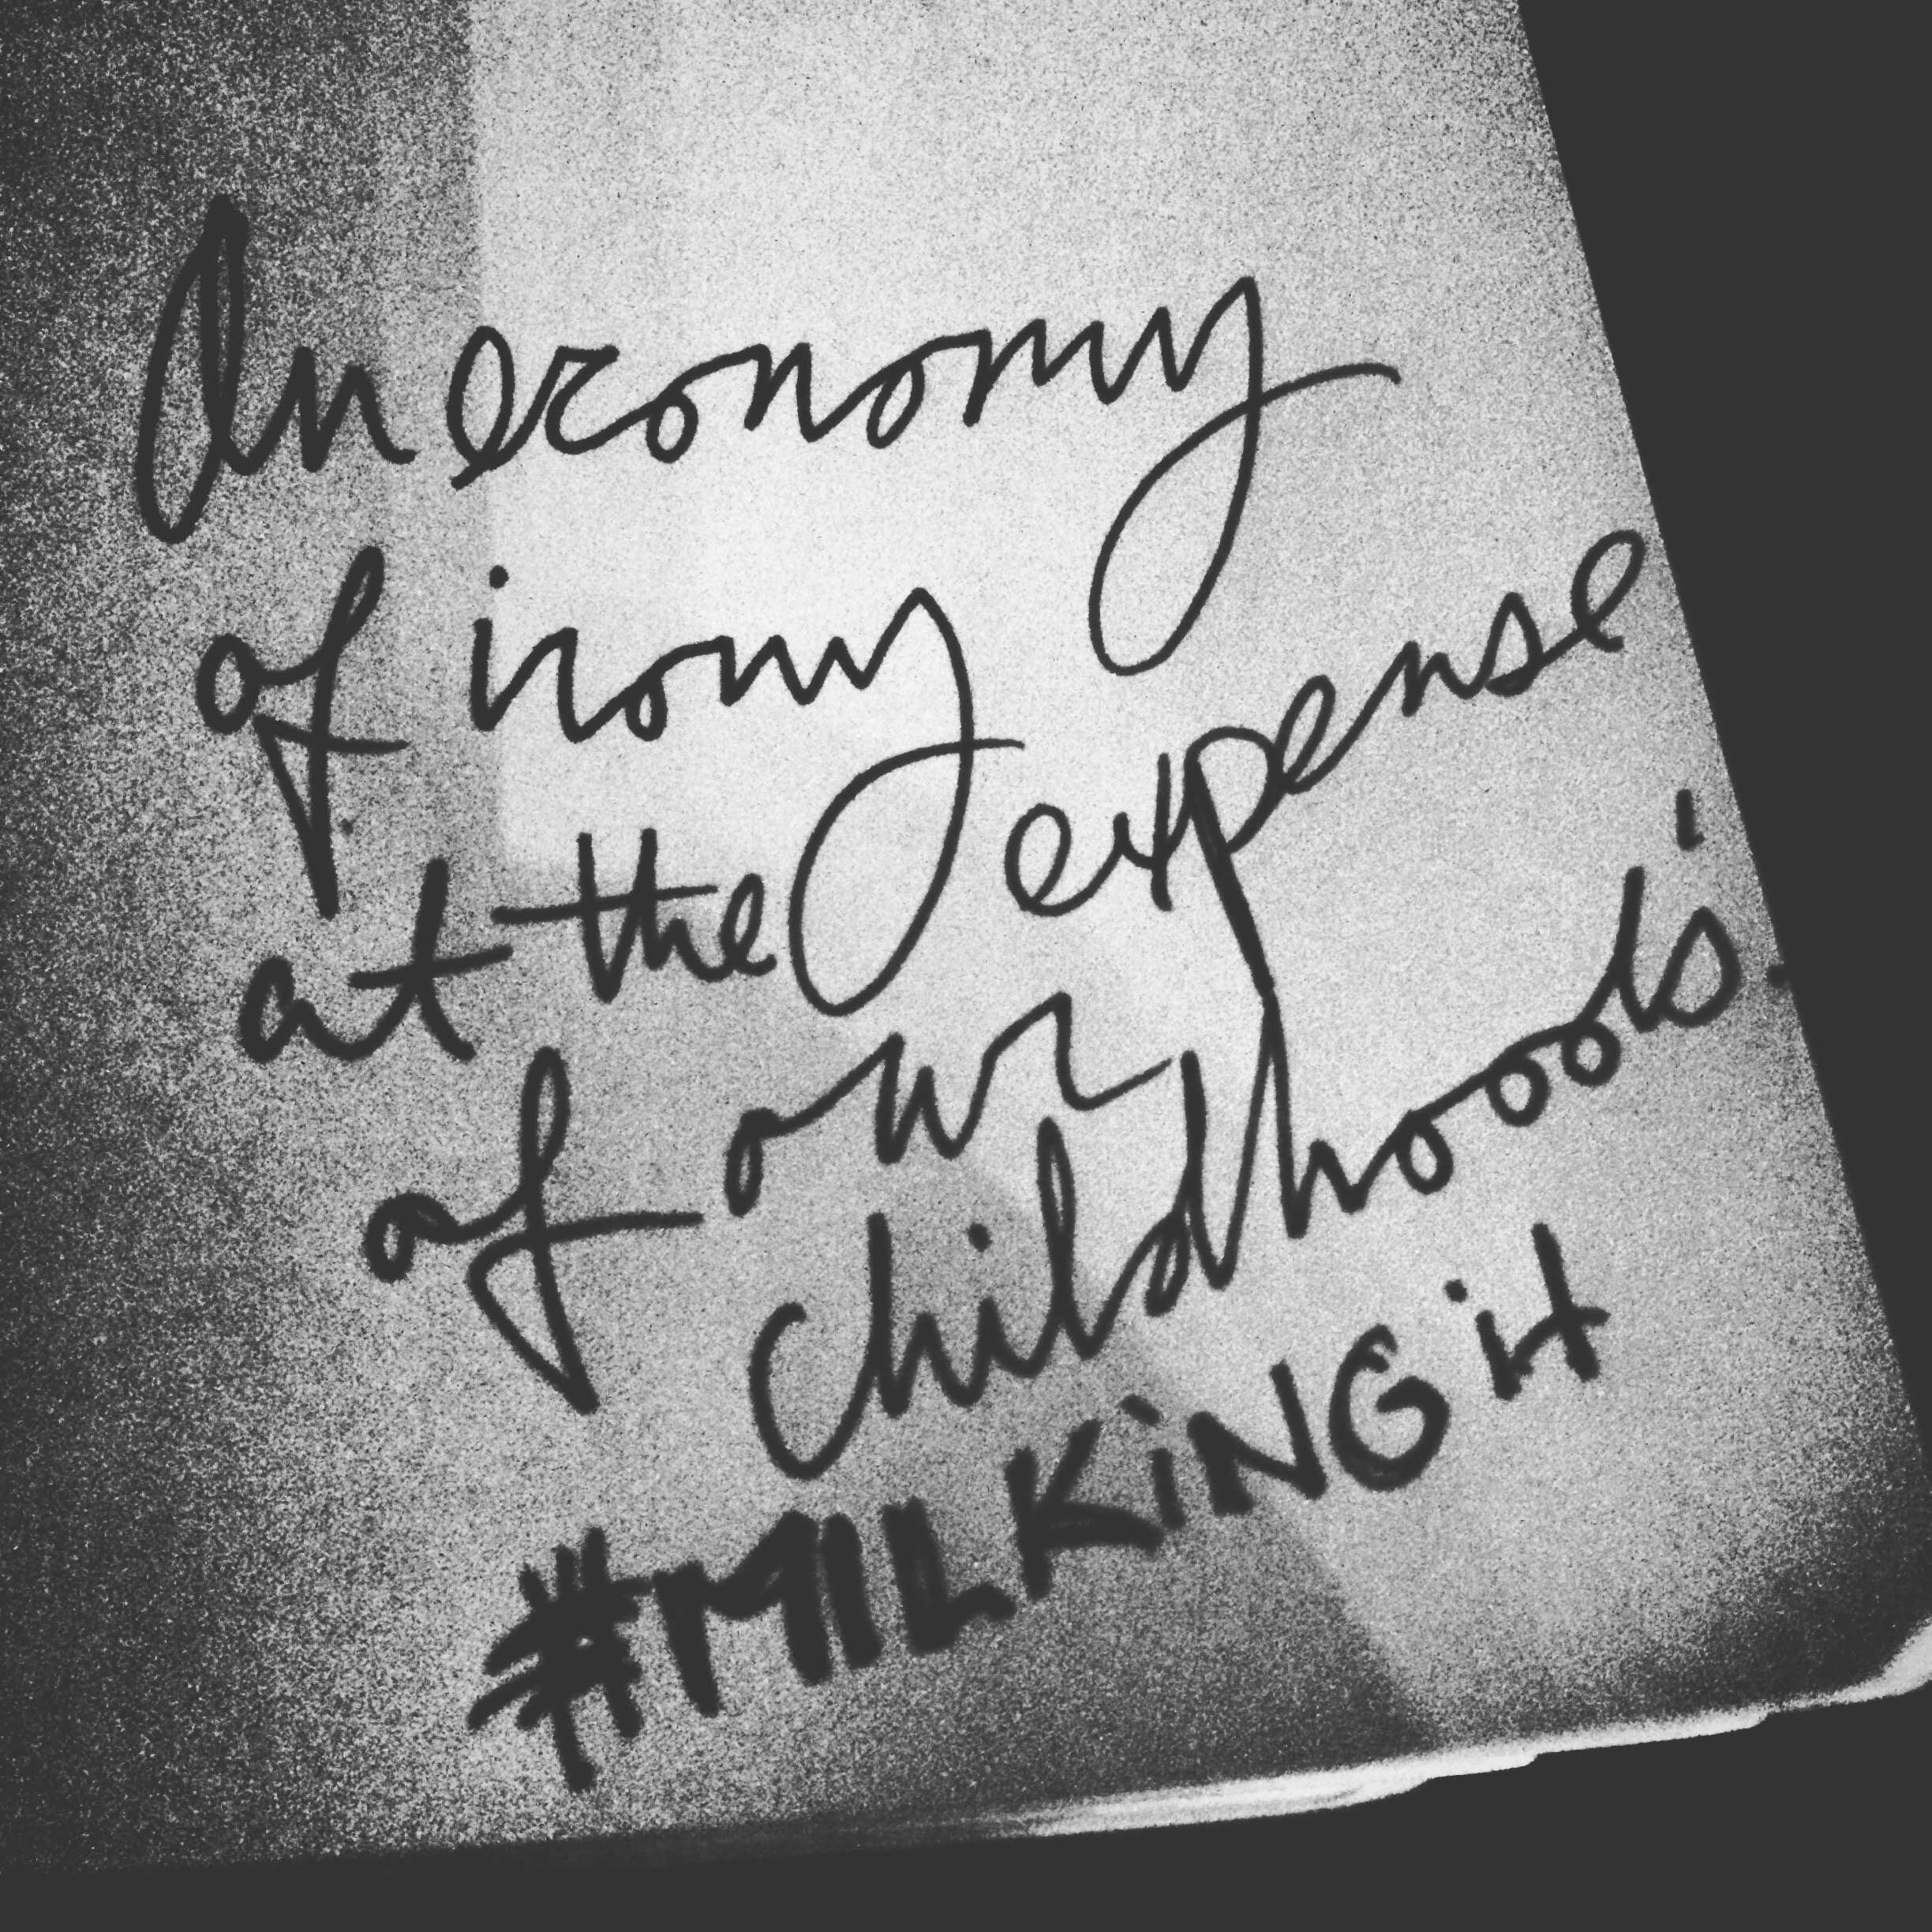 An economy
of irony
at the expense
of our
childhoods'.
#MILKiNG it